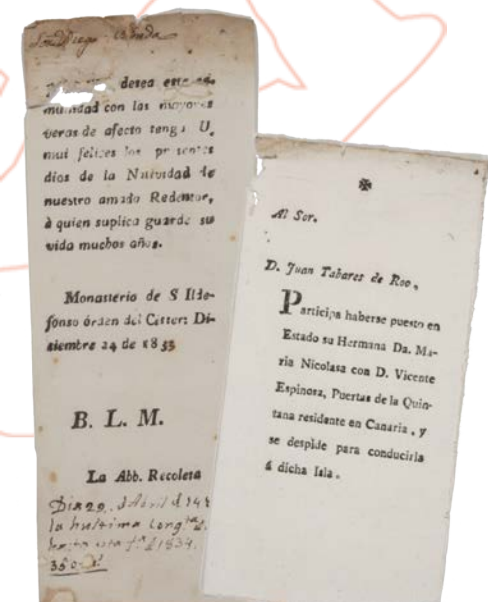 desea esta co-
munidad con las mayores
veras de afecto tenga U.
mui felices los presentes
dias de la Natividad de
nuestro amado Redentor,
à quien suplica guarde su
vida muchos años.
Monasterio de S Ilde-
fonso órden del Cister: Di-
siembre 24 de 1833
B. L. M.
La Abb. Recoleta
Dia 29. d Abril d
la hultima
hasta esta fha d 1834.
350
Al Sor.
D. Juan Tabares de Roo,
Participa haberse puesto en
Estado su Hermana Da. Ma-
ria Nicolasa con D. Vicente
Espinosa, Puertas de la Quin-
tana residente en Canaria, y
se despide para conducirla
á dicha Isla.